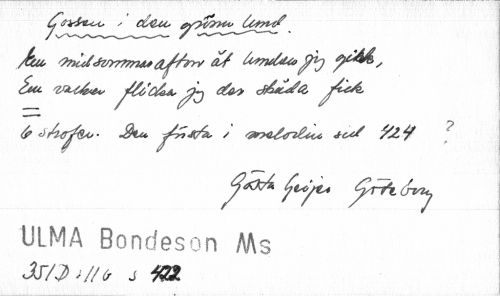 Gossen i den gröna lund.
En midsommarafton åt lunden jag gikk,
En vacker flicka jag der skåda fick
6 strofer. Den första i melodin sid 424 ?
Gösta Geijer Göteborg
ULMA Bondeson Ms
351D : 11 b s 422